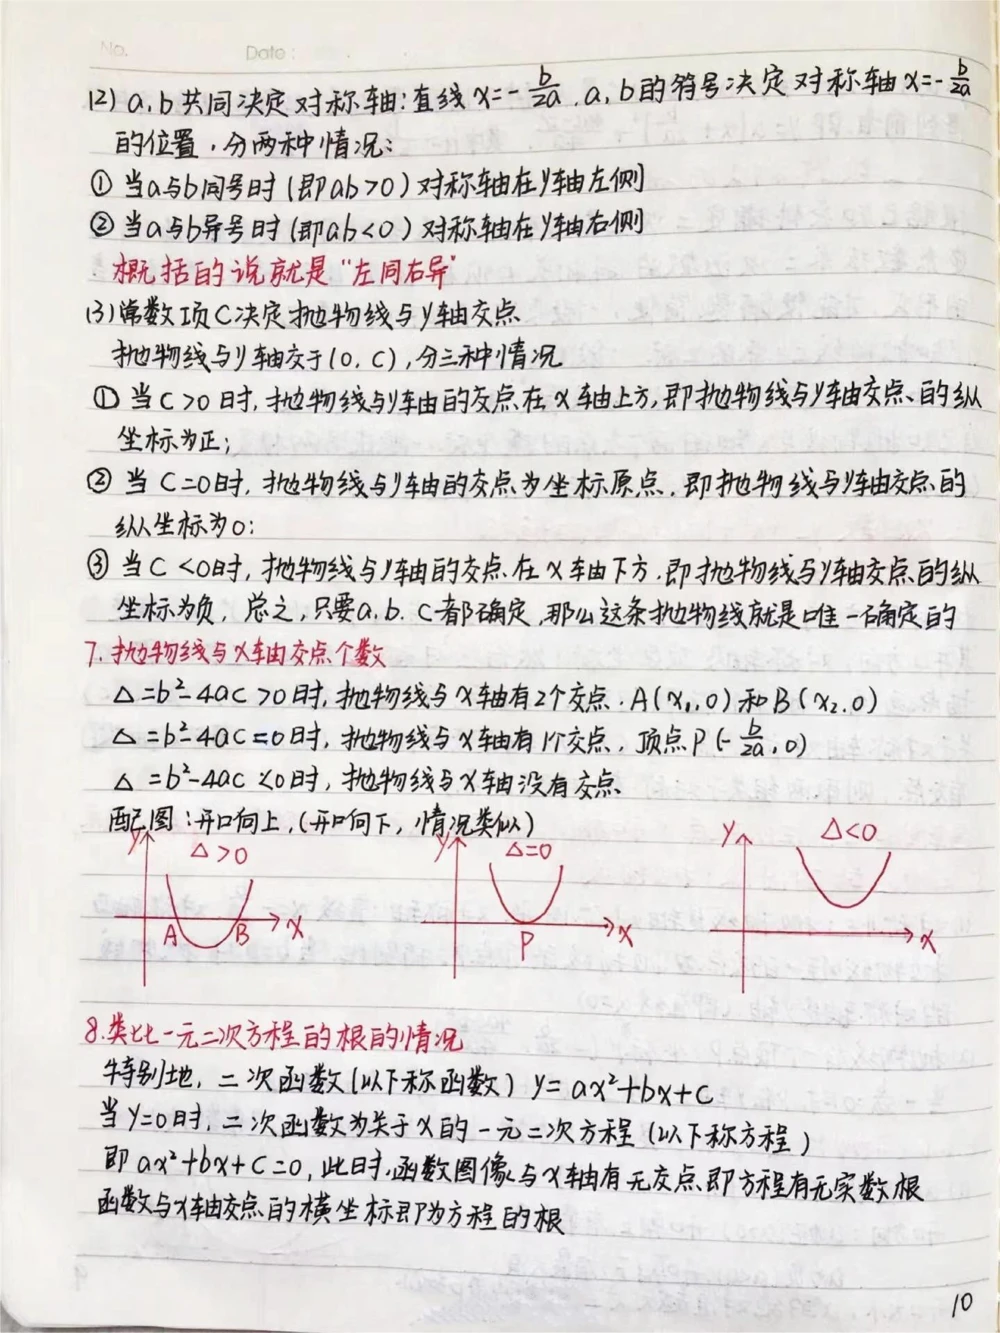 No.
Date:
(2) a,b共同决定对称轴:直线x=-b/2a.a,b的符号决定对称轴x=-b/2a
的位置,分两种情况:
① 当a与b同号时(即ab>0)对称轴在y轴左侧
② 当a与b异号时(即ab<0)对称轴在y轴右侧
概括的说就是“左同右异”
(3)常数项C决定抛物线与y轴交点
抛物线与y轴交于(0,C),分三种情况
① 当C>0时,抛物线与y轴的交点在x轴上方,即抛物线与y轴交点的纵
坐标为正;
② 当C=0时,抛物线与y轴的交点为坐标原点,即抛物线与y轴交点的
纵坐标为0;
③ 当C<0时,抛物线与y轴的交点在x轴下方.即抛物线与y轴交点的纵
坐标为负,总之,只要a.b.C都确定,那么这条抛物线就是唯一确定的
7.抛物线与x轴交点个数
△=b²-4ac>0时,抛物线与x轴有2个交点.A(x₁,0)和B(x₂.0)
△=b²-4ac=0时,抛物线与x轴有1个交点,顶点P(-b/2a,0)
△=b²-4ac<0时,抛物线与x轴没有交点
配图:开口向上,(开口向下,情况类似)
y △>0 A B x
y △=0 P x
y △<0 x
8.类比一元二次方程的根的情况
特别地,二次函数(以下称函数)y=ax²+bx+c
当y=0时,二次函数为关于x的一元二次方程(以下称方程)
即ax²+bx+c=0,此时,函数图像与x轴有无交点即方程有无实数根
函数与x轴交点的横坐标即为方程的根
10